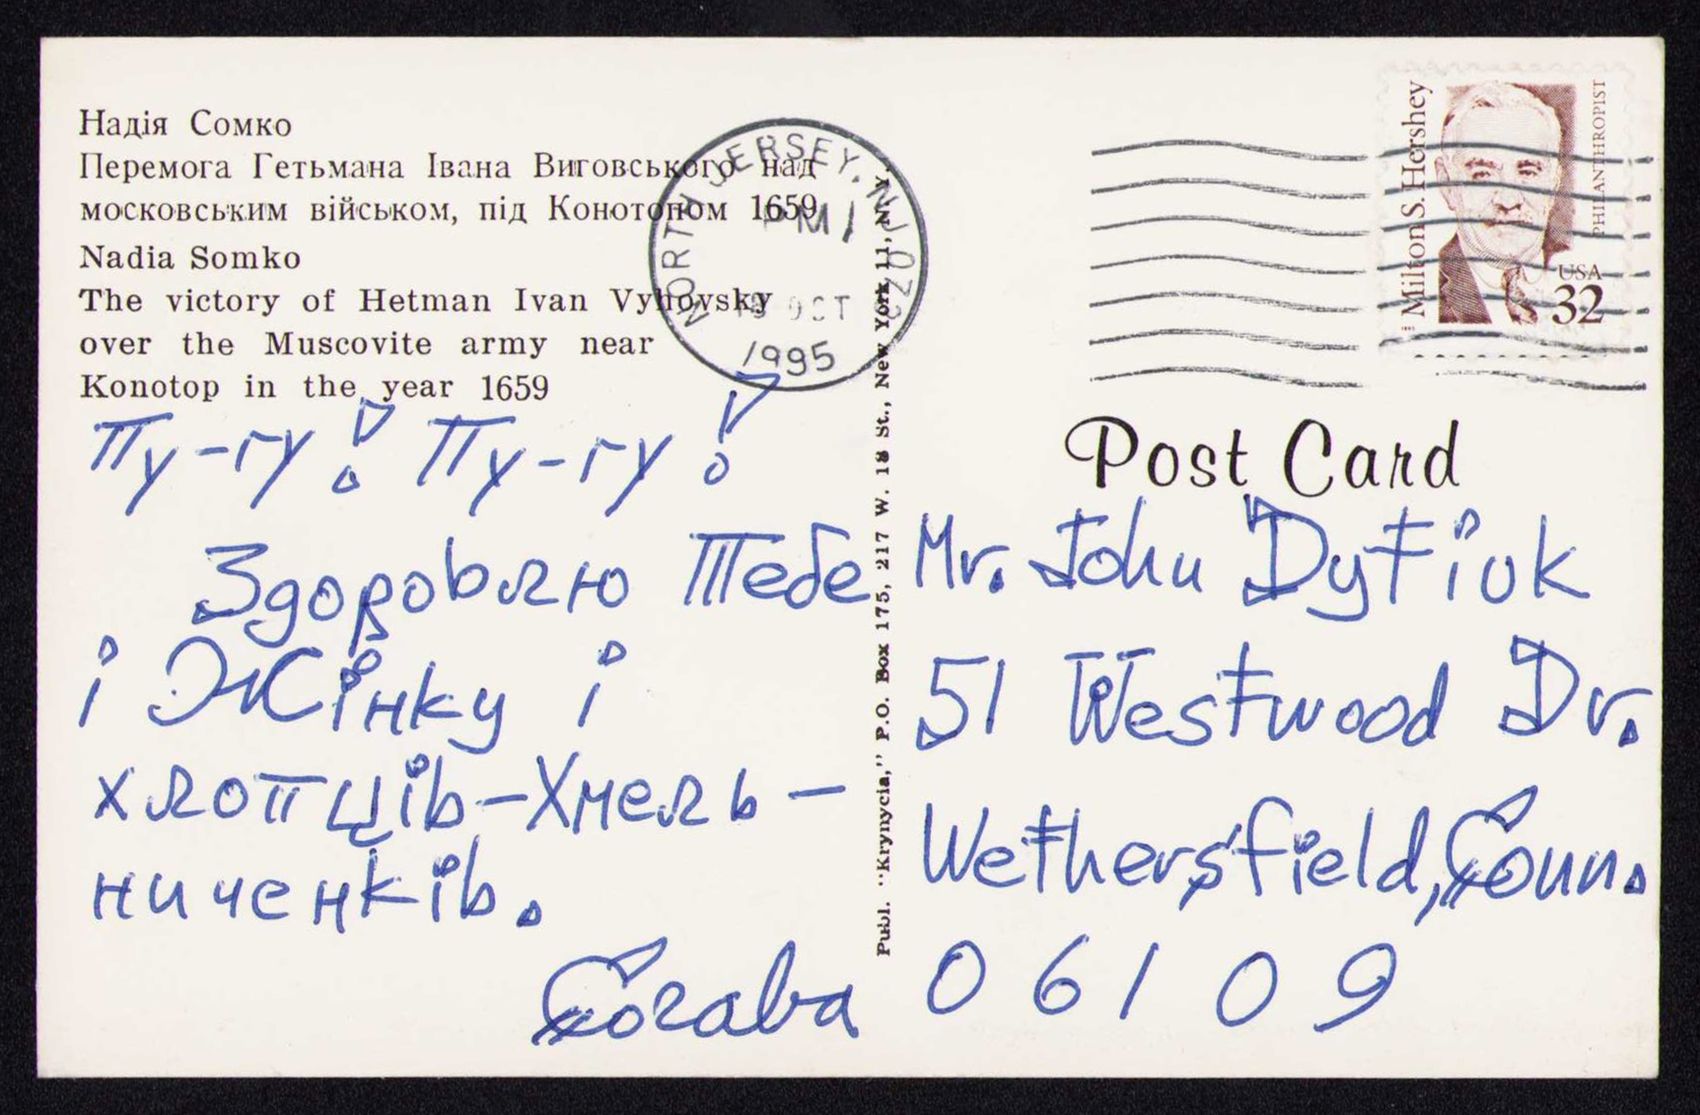 Надія Сомко
Перемога Гетьмана Івана Виговського над
московським військом, під Конотопом 1659
Nadia Somko
The victory of Hetman Ivan Vyhovsky
over the Muscovite army near
Konotop in the year 1659
Пу-гу! Пу-гу!
Здоровлю Тебе
і Жінку і
хлопців-Хмель-
ниченків.
Publ. "Krynycia," P.O. Box 175, 217 W. 18 St., New York 11, N.Y.
NORTH JERSEY, NJ 070
PM
OCT
1995
Milton S. Hershey
PHILANTHROPIST
USA
32
Post Card
Mr. John Dytiuk
51 Westwood Dr.
Wethersfield, Conn.
06109